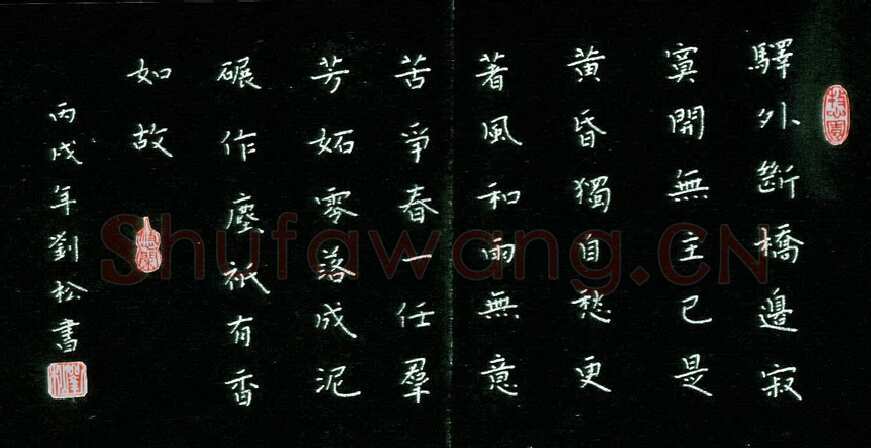 驛外斷橋邊寂
寞開無主已是
黃昏獨自愁更
著風和雨無意
苦爭春一任羣
芳妬零落成泥
碾作塵祇有香
如故
丙戌年劉松書
Shufawang.CN